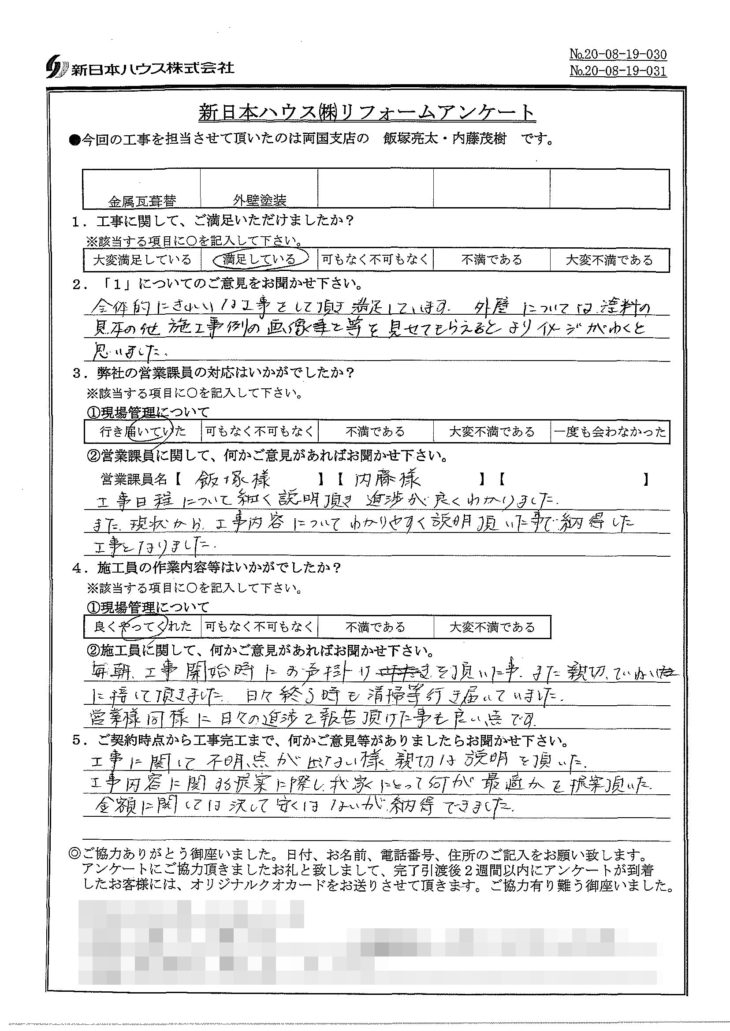 新日本ハウス株式会社
No.20-08-19-030
No.20-08-19-031
新日本ハウス㈱リフォームアンケート
●今回の工事を担当させて頂いたのは両国支店の 飯塚亮太・内藤茂樹 です。
金属瓦葺替 外壁塗装
1．工事に関して、ご満足いただけましたか？
※該当する項目に○を記入して下さい。
大変満足している 満足している 可もなく不可もなく 不満である 大変不満である
2．「1」についてのご意見をお聞かせ下さい。
全体的にきれいな工事をして頂き満足しています。外壁については、塗料の
見本の他、施工事例の画像 等を見せてもらえるとよりイメージがわくと
思いました。
3．弊社の営業課員の対応はいかがでしたか？
※該当する項目に○を記入して下さい。
①現場管理について
行き届いていた 可もなく不可もなく 不満である 大変不満である 一度も会わなかった
②営業課員に関して、何かご意見があればお聞かせ下さい。
営業課員名【 飯塚様 】【 内藤様 】【 】
工事日程について細く説明頂き進捗が良くわかりました。
また、現状から、工事内容についてわかりやすく説明頂いた事で納得した
工事となりました。
4．施工員の作業内容等はいかがでしたか？
※該当する項目に○を記入して下さい。
①現場管理について
良くやってくれた 可もなく不可もなく 不満である 大変不満である
②施工員に関して、何かご意見があればお聞かせ下さい。
毎朝、工事開始時にお声掛け を頂いた事、また親切、ていねい
に接して頂きました。日々終る時も清掃等行き届いていました。
営業様同様に日々の進捗を報告頂けた事も良い点です。
5．ご契約時点から工事完工まで、何かご意見等がありましたらお聞かせ下さい。
工事に関して不明点が出ない様、親切な説明を頂いた。
工事内容に関する提案に際し、我家にとって何が最適かを提案頂いた。
金額に関しては決して安くはないが、納得できました。
◎ご協力ありがとう御座いました。日付、お名前、電話番号、住所のご記入をお願い致します。
アンケートにご協力頂きましたお礼と致しまして、完了引渡後２週間以内にアンケートが到着
したお客様には、オリジナルクオカードをお送りさせて頂きます。ご協力有り難う御座いました。